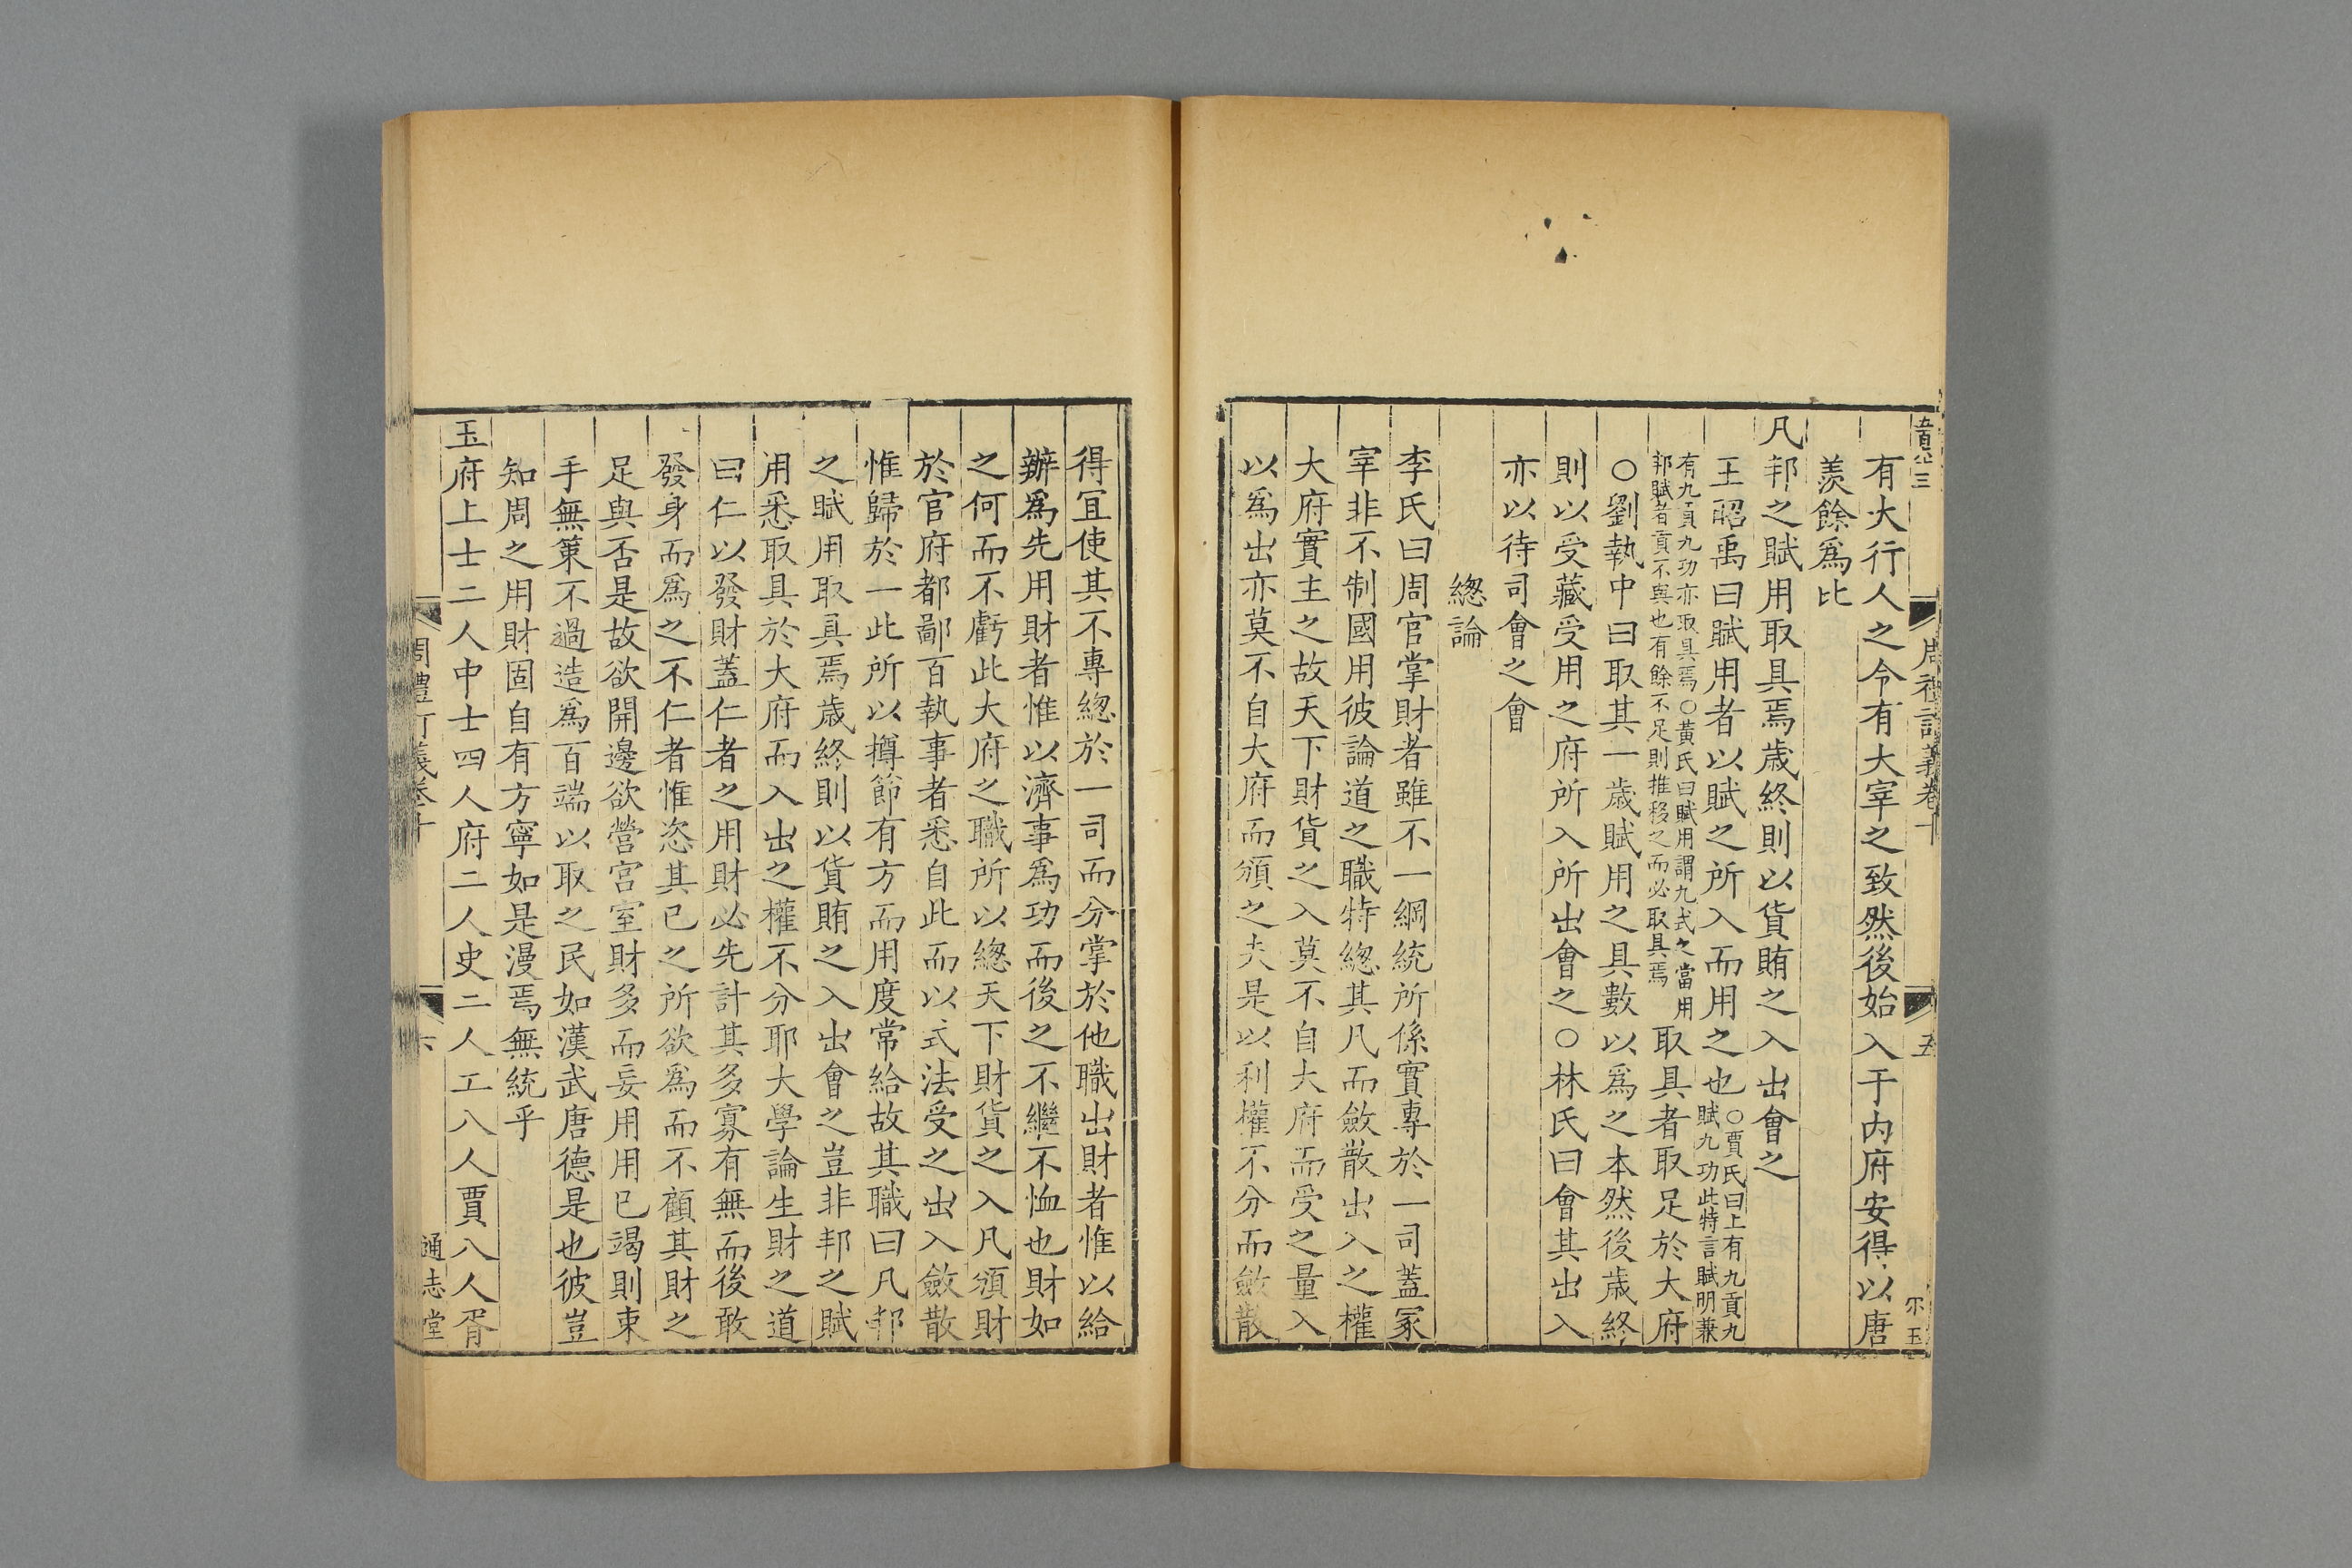 有大行人之令有大宰之致然後始入于内府安得以唐
羨餘爲比
凡邦之賦用取具焉歳終則以貨賄之入出會之
王昭禹曰賦用者以賦之所入而用之也○賈氏曰上有九貢九
賦九功此特言賦明兼
有九貢九功亦取具焉○黃氏曰賦用謂九式之當用
邦賦者貢不與也有餘不足則推移之而必取具焉
取具者取足於大府
○劉執中曰取其一歳賦用之具數以爲之本然後歳終
則以受藏受用之府所入所出會之○林氏曰會其出入
亦以待司會之會
緫論
李氏曰周官掌財者雖不一綱統所係實專於一司蓋冢
宰非不制國用彼論道之職特緫其凡而斂散出入之權
大府實主之故天下財貨之入莫不自大府而受之量入
以爲出亦莫不自大府而頒之夫是以利權不分而斂散
得宜使其不專緫於一司而分掌於他職出財者惟以給
辦爲先用財者惟以濟事爲功而後之不繼不恤也財如
之何而不虧此大府之職所以緫天下財貨之入凡頒財
於官府都鄙百執事者悉自此而以式法受之出入斂散
惟歸於一此所以撙節有方而用度常給故其職曰凡邦
之賦用取具焉歳終則以貨賄之入出會之豈非邦之賦
用悉取具於大府而入出之權不分耶大學論生財之道
曰仁以發財蓋仁者之用財必先計其多寡有無而後敢
發身而爲之不仁者惟恣其已之所欲爲而不顧其財之
足與否是故欲開邊欲營宫室財多而妄用用已竭則束
手無策不過造爲百端以取之民如漢武唐德是也彼豈
知周之用財固自有方寧如是漫焉無統乎
玉府上士二人中士四人府二人史二人工八人賈八人胥
周禮訂義卷十
六
通志堂